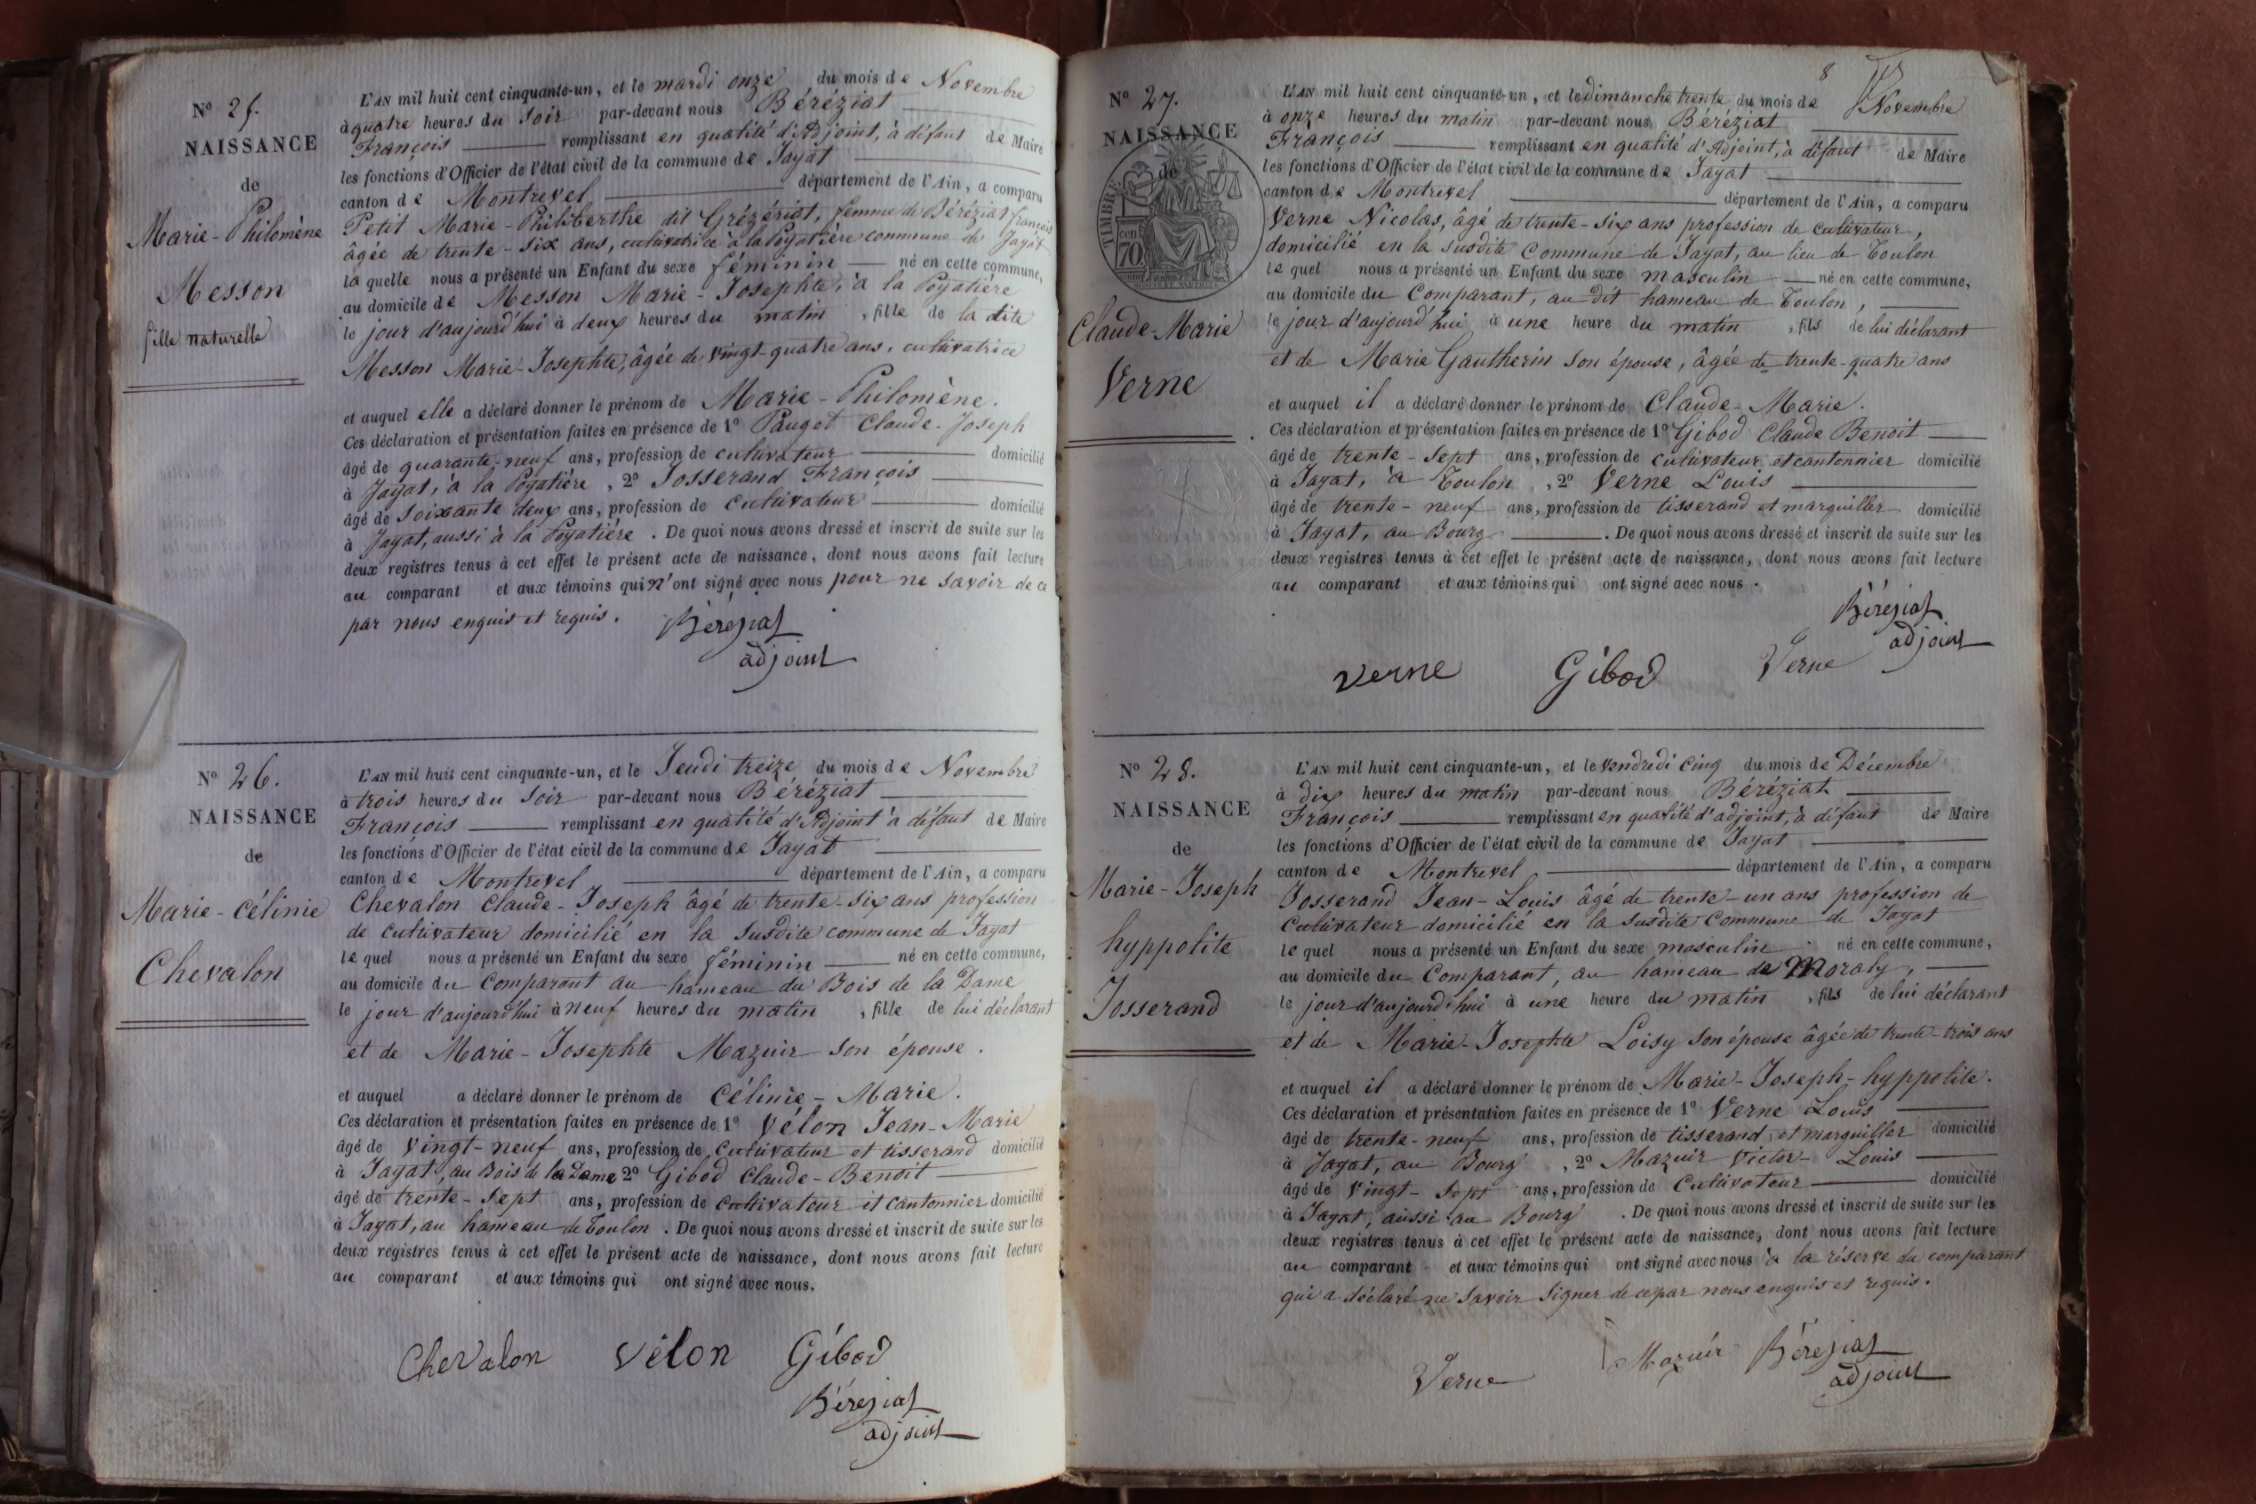 Nº 25.
NAISSANCE
de
Marie-Philomène
Messon
fille naturelle
L'AN mil huit cent cinquante-un, et le mardi onze du mois de Novembre
à quatre heures du soir par-devant nous Béréziat
François remplissant en qualité d'Adjoint, à défaut de Maire
les fonctions d'Officier de l'état civil de la commune de Jayat
canton de Montrevel département de l'Ain, a comparu
Petit Marie-Philiberthe dit Grézériat, femme de Béréziat françois
âgée de trente-six ans, cultivatrice à la Poyatière commune de Jayat
la quelle nous a présenté un Enfant du sexe féminin né en cette commune,
au domicile de Messon Marie-Josephte, à la Poyatière
le jour d'aujourd'hui à deux heures du matin, fille de la dite
Messon Marie-Josephte, âgée de vingt-quatre ans, cultivatrice
et auquel elle a déclaré donner le prénom de Marie-Philomène.
Ces déclaration et présentation faites en présence de 1º Pauget Claude-Joseph
âgé de quarante-neuf ans, profession de cultivateur domicilié
à Jayat, à la Poyatière, 2º Josserand François
âgé de soixante deux ans, profession de cultivateur domicilié
à Jayat, aussi à la Poyatière. De quoi nous avons dressé et inscrit de suite sur les
deux registres tenus à cet effet le présent acte de naissance, dont nous avons fait lecture
au comparant et aux témoins qui n'ont signé avec nous pour ne savoir de ce
par nous enquis et requis.
Béréziat
adjoint
Nº 26.
NAISSANCE
de
Marie-Célinie
Chevalon
L'AN mil huit cent cinquante-un, et le Jeudi treize du mois de Novembre
à trois heures du soir par-devant nous Béréziat
François remplissant en qualité d'Adjoint à défaut de Maire
les fonctions d'Officier de l'état civil de la commune de Jayat
canton de Montrevel département de l'Ain, a comparu
Chevalon Claude-Joseph âgé de trente-six ans profession
de cultivateur domicilié en la susdite commune de Jayat
le quel nous a présenté un Enfant du sexe féminin né en cette commune,
au domicile du comparant au hameau du Bois de la Dame
le jour d'aujourd'hui à neuf heures du matin, fille de lui déclarant
et de Marie-Josephte Mazuir son épouse.
et auquel a déclaré donner le prénom de Célinie-Marie.
Ces déclaration et présentation faites en présence de 1º Vélon Jean-Marie
âgé de vingt-neuf ans, profession de cultivateur et tisserand domicilié
à Jayat, au Bois de la Dame 2º Gibod Claude-Benoit
âgé de trente-sept ans, profession de cultivateur et cantonnier domicilié
à Jayat, au hameau de Toulon. De quoi nous avons dressé et inscrit de suite sur les
deux registres tenus à cet effet le présent acte de naissance, dont nous avons fait lecture
au comparant et aux témoins qui ont signé avec nous.
Chevalon Vélon Gibod
Béréziat
adjoint
8
Nº 27.
NAISSANCE
de
TIMBRE
70
Claude-Marie
Verne
L'AN mil huit cent cinquante-un, et le dimanche trente du mois de Novembre
à onze heures du matin par-devant nous Béréziat
François remplissant en qualité d'Adjoint, à défaut de Maire
les fonctions d'Officier de l'état civil de la commune de Jayat
canton de Montrevel département de l'Ain, a comparu
Verne Nicolas, âgé de trente-six ans profession de cultivateur,
domicilié en la susdite commune de Jayat, au lieu de Toulon
le quel nous a présenté un Enfant du sexe masculin né en cette commune,
au domicile du Comparant, au dit hameau de Toulon,
le jour d'aujourd'hui à une heure du matin, fils de lui déclarant
et de Marie Gautherin son épouse, âgée de trente-quatre ans
et auquel il a déclaré donner le prénom de Claude-Marie.
Ces déclaration et présentation faites en présence de 1º Gibod Claude Benoit
âgé de trente-sept ans, profession de cultivateur et cantonnier domicilié
à Jayat, à Toulon, 2º Verne Louis
âgé de trente-neuf ans, profession de tisserand et marguiller domicilié
à Jayat, au Bourg. De quoi nous avons dressé et inscrit de suite sur les
deux registres tenus à cet effet le présent acte de naissance, dont nous avons fait lecture
au comparant et aux témoins qui ont signé avec nous.
Béréziat
adjoint
Verne Gibod Verne
Nº 28.
NAISSANCE
de
Marie-Joseph
hyppolite
Josserand
L'AN mil huit cent cinquante-un, et le vendredi cinq du mois de Décembre
à dix heures du matin par-devant nous Béréziat
François remplissant en qualité d'adjoint, à défaut de Maire
les fonctions d'Officier de l'état civil de la commune de Jayat
canton de Montrevel département de l'Ain, a comparu
Josserand Jean-Louis âgé de trente-un ans profession de
cultivateur domicilié en la susdite Commune de Jayat
le quel nous a présenté un Enfant du sexe masculin né en cette commune,
au domicile du Comparant, au hameau de Moraly,
le jour d'aujourd'hui à une heure du matin, fils de lui déclarant
et de Marie-Josephte Loisy son épouse âgée de trente-trois ans
et auquel il a déclaré donner le prénom de Marie-Joseph-hyppolite.
Ces déclaration et présentation faites en présence de 1º Verne Louis
âgé de trente-neuf ans, profession de tisserand et marguiller domicilié
à Jayat, au Bourg, 2º Mazuir Victor-Louis
âgé de vingt-sept ans, profession de Cultivateur domicilié
à Jayat, aussi au Bourg. De quoi nous avons dressé et inscrit de suite sur les
deux registres tenus à cet effet le présent acte de naissance, dont nous avons fait lecture
au comparant et aux témoins qui ont signé avec nous à la réserve du comparant
qui a déclaré ne savoir signer de ce par nous enquis et requis.
Verne Mazuir Béréziat
adjoint